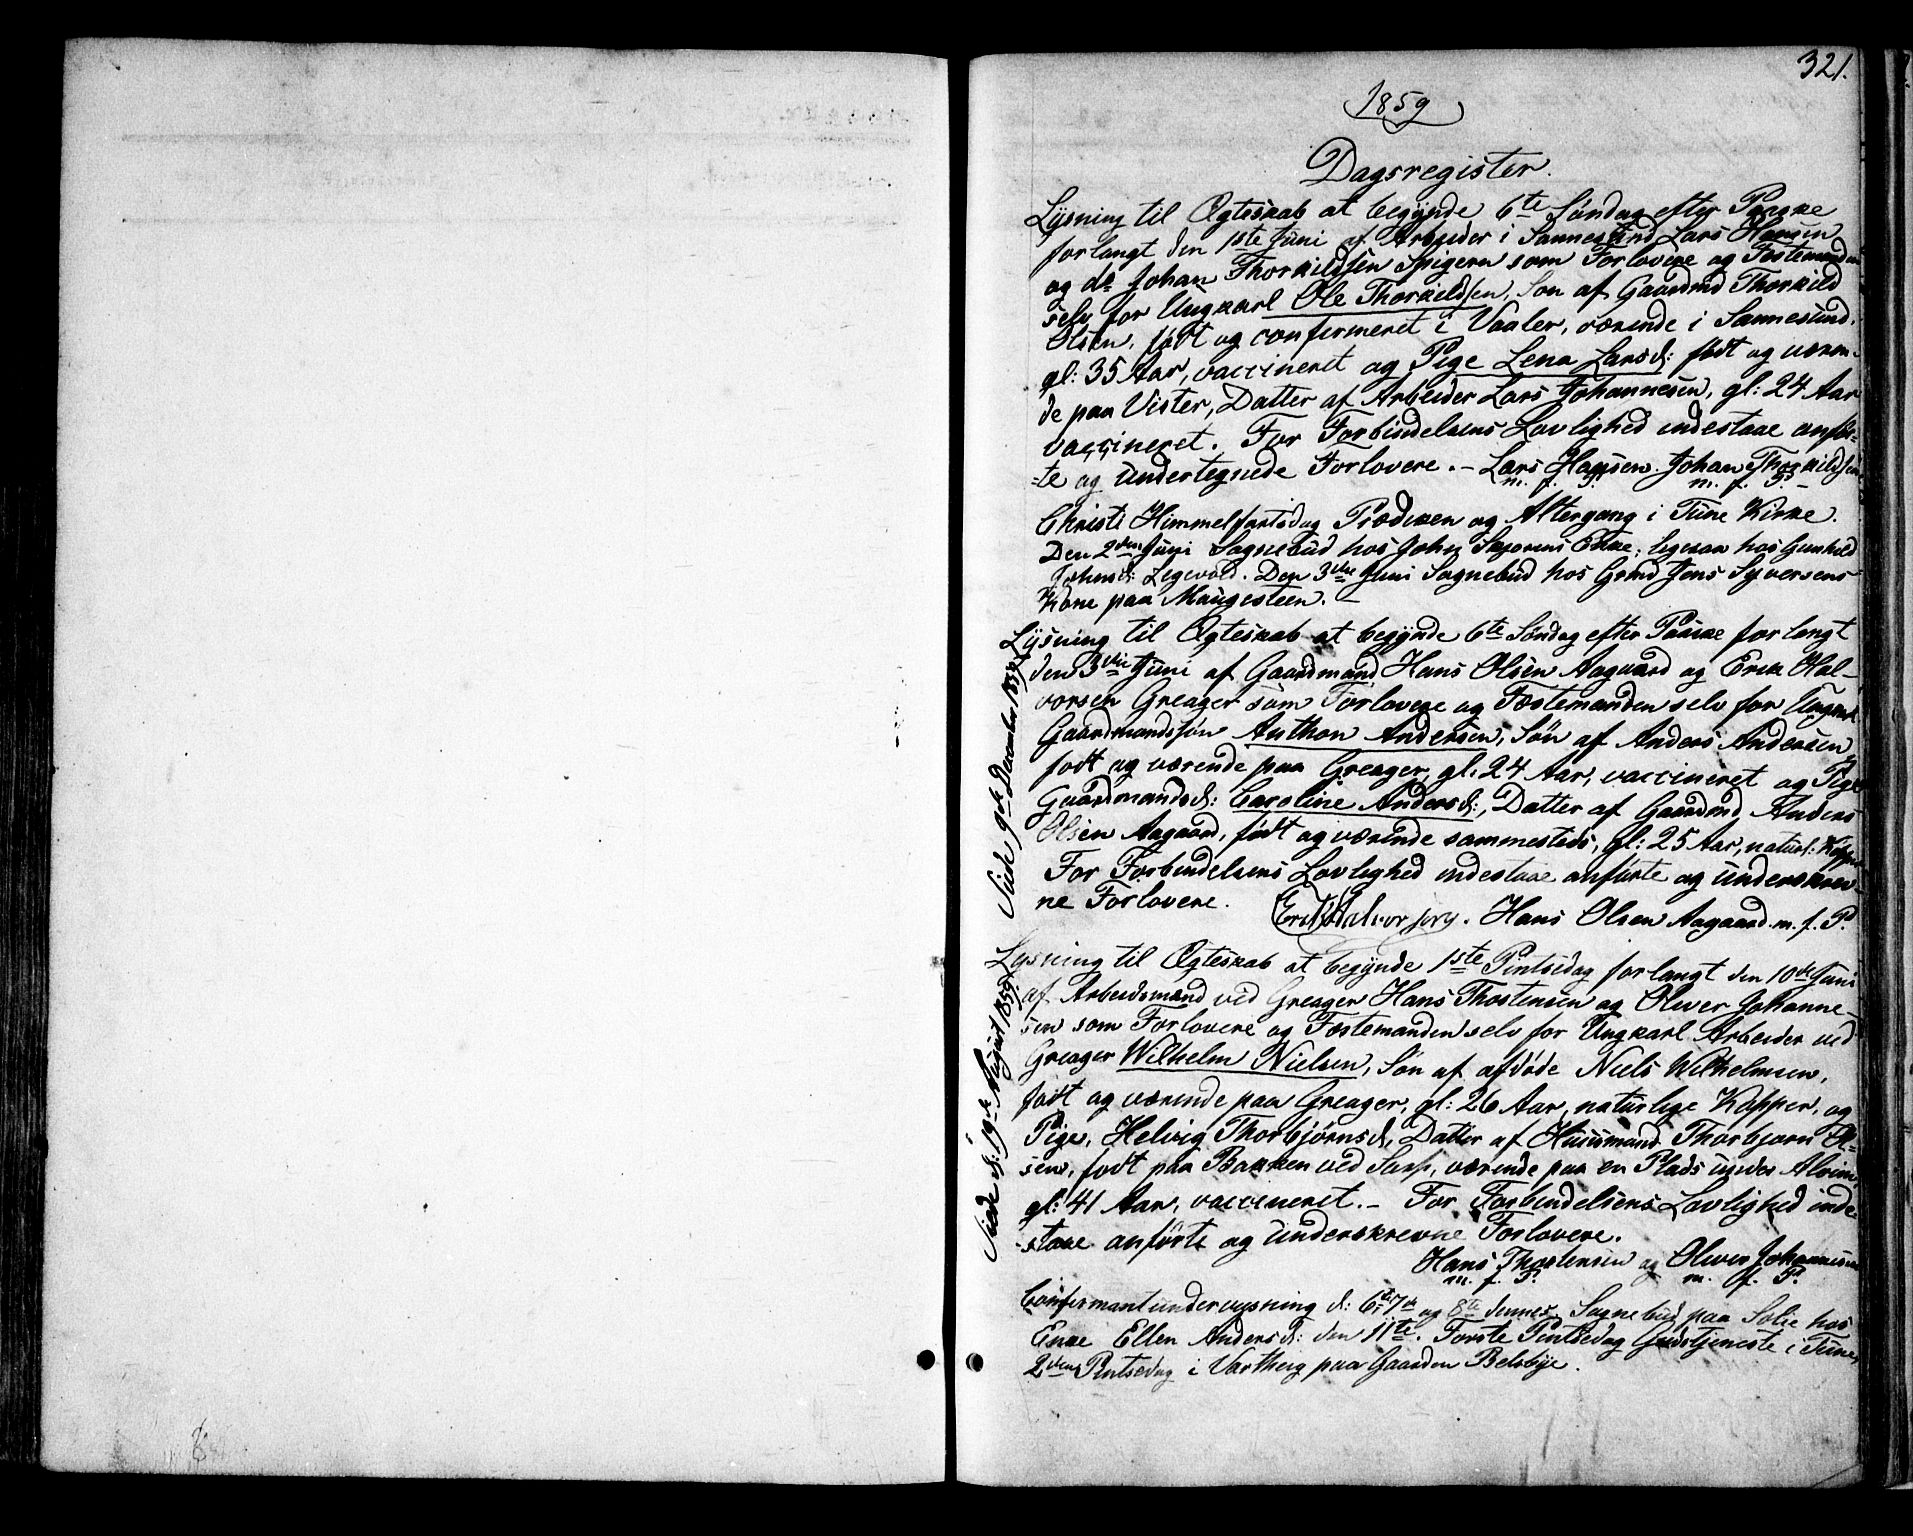 321.
1859
Dagsregister.
Lysning til Ægteskab at begynde 6te Søndag efter Paaske
forlangt den 1ste Juni af Arbeider i Sannesund Lars Hansen
og do Johan Thorkildsen Spigeren som Forlovere og Festemanden
selv for Ungkarl Ole Thorkildsen, Søn af Gaardmd Thorkild
Olsen, født og confirmeret i Vaaler, værende i Sannesund,
gl: 35 Aar, vaccineret og Pige Lena Larsd: født og væren-
de paa Vister, Datter af Arbeider Lars Johannesen, gl: 24 Aar
vaccineret. For Forbindelsens Lovlighed indestaae anfør-
-te og undertegnede Forlovere. – Lars Hansen. Johan Thorkildsen
m. f. P. m. f. P. –
Christi Himmelfartsdag Prædiken og Altergang i Tune Kirke.
Den 2den Juni Sognebud hos John Enke, ligesaa hos Gunhild
Johnsd: Legevold. Den 3die Juni Sognebud hos Grmd Jens Syversens
Kone paa Haugesteen. –
Lysning til Ægteskab at begynde 6te Søndag efter Paaske forlangt
den 3die Juni af Gaardmand Hans Olsen Aagaard og Erik Hal-
vorsen Greager som Forlovere og Fæstemanden selv for Ungkarl
Gaardmandssøn Anthon Andersen, Søn af Anders Andersen
født og værende paa Greager, gl: 24 Aar, vaccineret og Pige
Gaardmandsd: Caroline Andersd:, Datter af Gaardmd Anders
Olsen Aagaard, født og værende sammesteds, gl: 25 Aar, naturl: Kopper
For Forbindelsens Lovlighed indestaae anførte og underskrev-
ne Forlovere. Erik Halvorsen. Hans Olsen Aagaard. m. f. P.
Viede 9de December 1859.
Lysning til Ægteskab at begynde 1ste Pintsedag forlangt den 10de Juni
af Arbeidsmænd ved Greager Hans Thostensen og Oliver Johanne-
sen som Forlovere og Fæstemanden selv for Ungkarl Arbeider ved
Greager Wilhelm Nielsen, Søn af afdøde Niels Wilhelmsen,
født og værende paa Greager, gl: 26 Aar, naturlige Kopper, og
Pige, Helvig Thorbjørnsd, Datter af Huusmand Thorbjørn Ol-
sen, født paa Bakken ved Sarp, værende paa en Plads under Alvim,
gl: 41 Aar, vaccineret. – For Forbindelsens Lovlighed inde
-staae anførte og underskrevne Forlovere.
Hans Thostensen og Oliver Johannesen
m. f. P. m. f. P.
Viede d: 19de August 1859.
Confirmantundervisning d: 6te, 7de og 8te dennes. Sognebud paa Solie hos
Enke Ellen Andersd: den 11te. Første Pintsedag Gudstjeneste i Tune,
2den Pintsedag i Varteig paa Gaarden Belsbye.